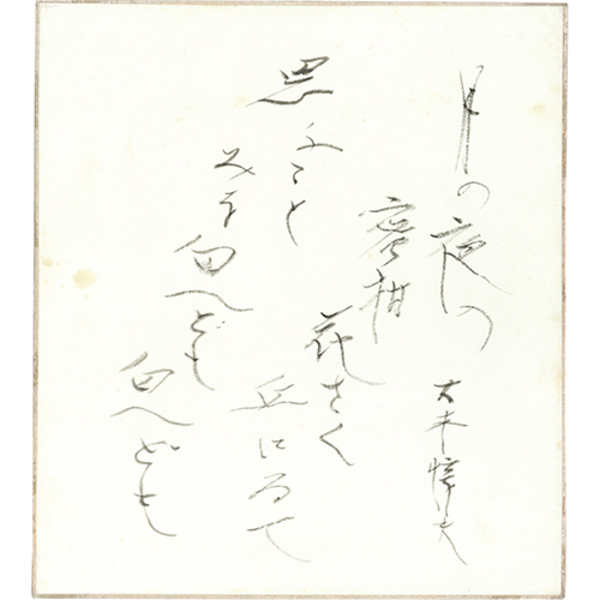 月の夜の
蜜柑
花さく
丘にゐて
思ふこと
みな匂へども
匂へども
大木惇夫